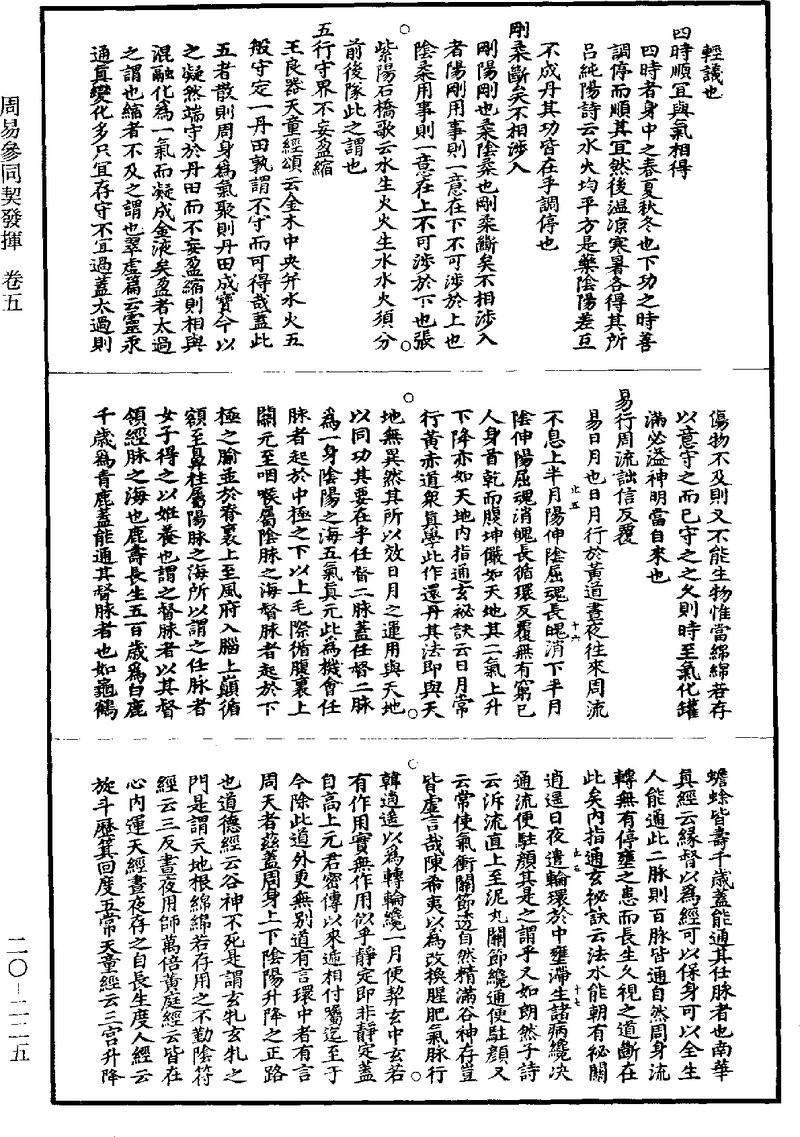 周易參同契發揮　卷五
二〇—二二五
輕議也
四時順宜與氣相得
四時者身中之春夏秋冬也下功之時善
調停而順其宜然後溫凉寒暑各得其所
呂純陽詩云水火均平方是藥陰陽差互
不成丹其功皆在乎調停也
剛柔斷矣不相涉入
剛陽剛也柔陰柔也剛柔斷矣不相涉入
者陽剛用事則一意在下不可涉於上也
陰柔用事則一意在上不可涉於下也張
紫陽石橋歌云水生火火生水水火須分
前後隊此之謂也
五行守界不妄盈縮
王良器天童經頌云金木中央并水火五
般守定一丹田孰謂不守而可得哉蓋此
五者散則周身爲氣聚則丹田成寶今以
之凝然端守於丹田而不妄盈縮則相與
混融化爲一氣而凝成金液矣盈者太過
之謂也縮者不及之謂也翠虛篇云靈汞
通眞變化多只宜存守不宜過蓋太過則
傷物不及則又不能生物惟當綿綿若存
以意守之而已守之之久則時至氣化罐
滿必溢神明當自來也
易行周流詘信反覆
易日月也日月行於黃道晝夜往來周流
不息上半月陽伸陰屈魂長魄消下半月
陰伸陽屈魂消魄長循環反覆無有窮已
人身首乾而腹坤儼如天地其二氣上升
下降亦如天地內指通玄秘訣云日月常
行黃赤道衆眞學此作還丹其法即與天
地無異然其所以效日月之運用與天地
以同功其要在乎任督二脉蓋任督二脉
爲一身陰陽之海五氣眞元此爲機會任
脉者起於中極之下以上毛際循腹裏上
關元至咽喉屬陰脉之海督脉者起於下
極之腧並於脊裏上至風府入腦上巔循
額至鼻柱屬陽脉之海所以謂之任脉者
女子得之以姙養也謂之督脉者以其督
領經脉之海也鹿壽長生五百歲爲白鹿
千歲爲青鹿蓋能通其督脉者也如龜鶴
蟾蜍皆壽千歲蓋能通其任脉者也南華
眞經云緣督以爲經可以保身可以全生
人能通此二脉則百脉皆通自然周身流
轉無有停壅之患而長生久視之道斷在
此矣內指通玄秘訣云法水能朝有秘關
逍遥日夜遣輪環於中壅滯生諸病纔决
通流便駐顏其是之謂乎又如朗然子詩
云泝流直上至泥丸關節纔通便駐顏又
云常使氣衝關節透自然精滿谷神存豈
皆虛言哉陳希夷以爲改換腥肥氣脉行
韓逍遥以爲轉輪纔一月便契玄中玄若
有作用實無作用似乎靜定即非靜定蓋
自高上元君密傳以來遞相付囑迄至于
今除此道外更無別道有言環中者有言
周天者玆蓋周身上下陰陽升降之正路
也道德經云谷神不死是謂玄牝玄牝之
門是謂天地根綿綿若存用之不勤陰符
經云三反晝夜用師萬倍黃庭經云皆在
心內運天經晝夜存之自長生度人經云
旋斗歷箕回度五常天童經云三宮升降